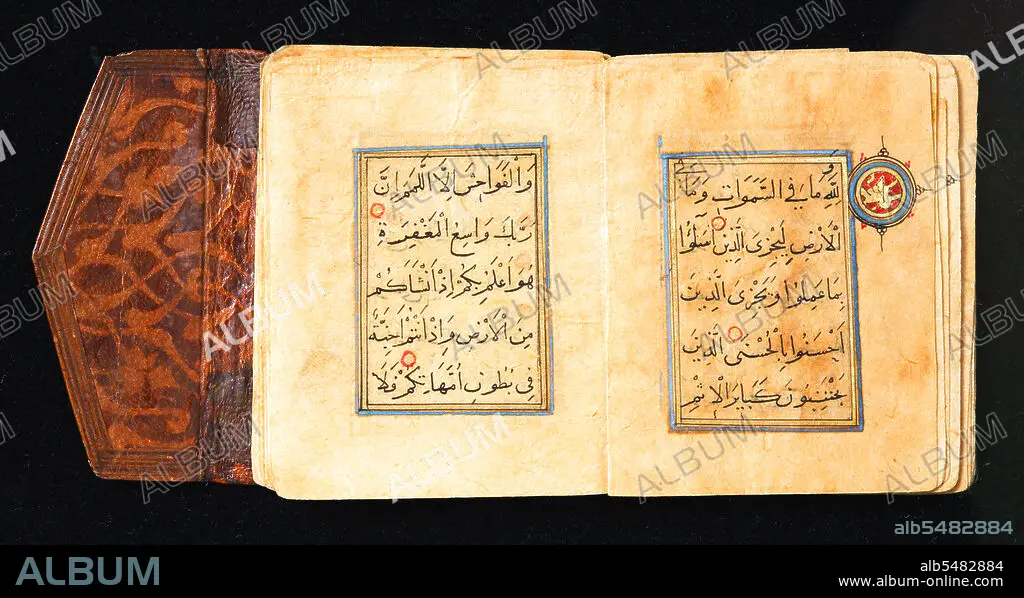 وَلِلَّهِ مَا فِي السَّمَوَاتِ وَمَا فِي
الْأَرْضِ لِيَجْزِيَ الَّذِينَ أَسَآؤُا
بِمَا عَمِلُوا وَيَجْزِيَ الَّذِينَ
أَحْسَنُوا بِالْحُسْنَى الَّذِينَ
يَجْتَنِبُونَ كَبَايِرَ الْإِثْمِ
وَالْفَوَاحِشَ إِلَّا اللَّمَمَ إِنَّ
رَبَّكَ وَاسِعُ الْمَغْفِرَةِ
هُوَ أَعْلَمُ بِكُمْ إِذْ أَنْشَأَكُمْ
مِنَ الْأَرْضِ وَإِذْ أَنْتُمْ أَجِنَّةٌ
فِي بُطُونِ أُمَّهَاتِكُمْ فَلَا
alb5482884
ALBUM
alb5482884
www.album-online.com